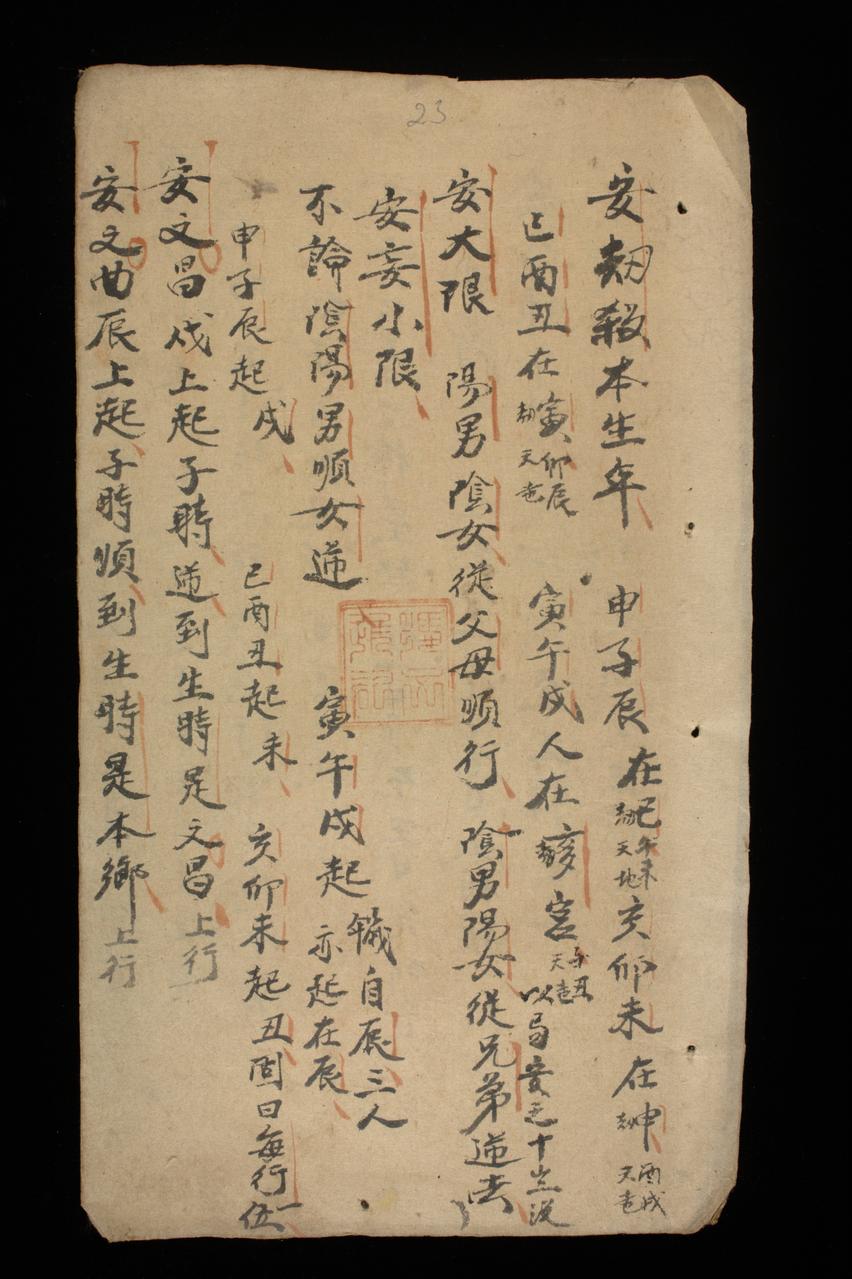 23
安刼殺本生年 申子辰在巳刼午未天地亥卯未在申刼酉戌天
巳酉丑在寅刼卯辰天 寅午戌人在亥刼宮子丑天 以
安大限 陽男陰女從父母順行 陰男陽女從兄弟逆去
安妄小限 寅午戌起 自辰三人
不論陰陽男順女逆 亦起在辰
申子辰起戌 巳酉丑起未 亥卯未起丑固曰每行伍一
安文昌戌上起子時逆到生時是文昌上行
安文曲辰上起子時順到生時是本鄉上行